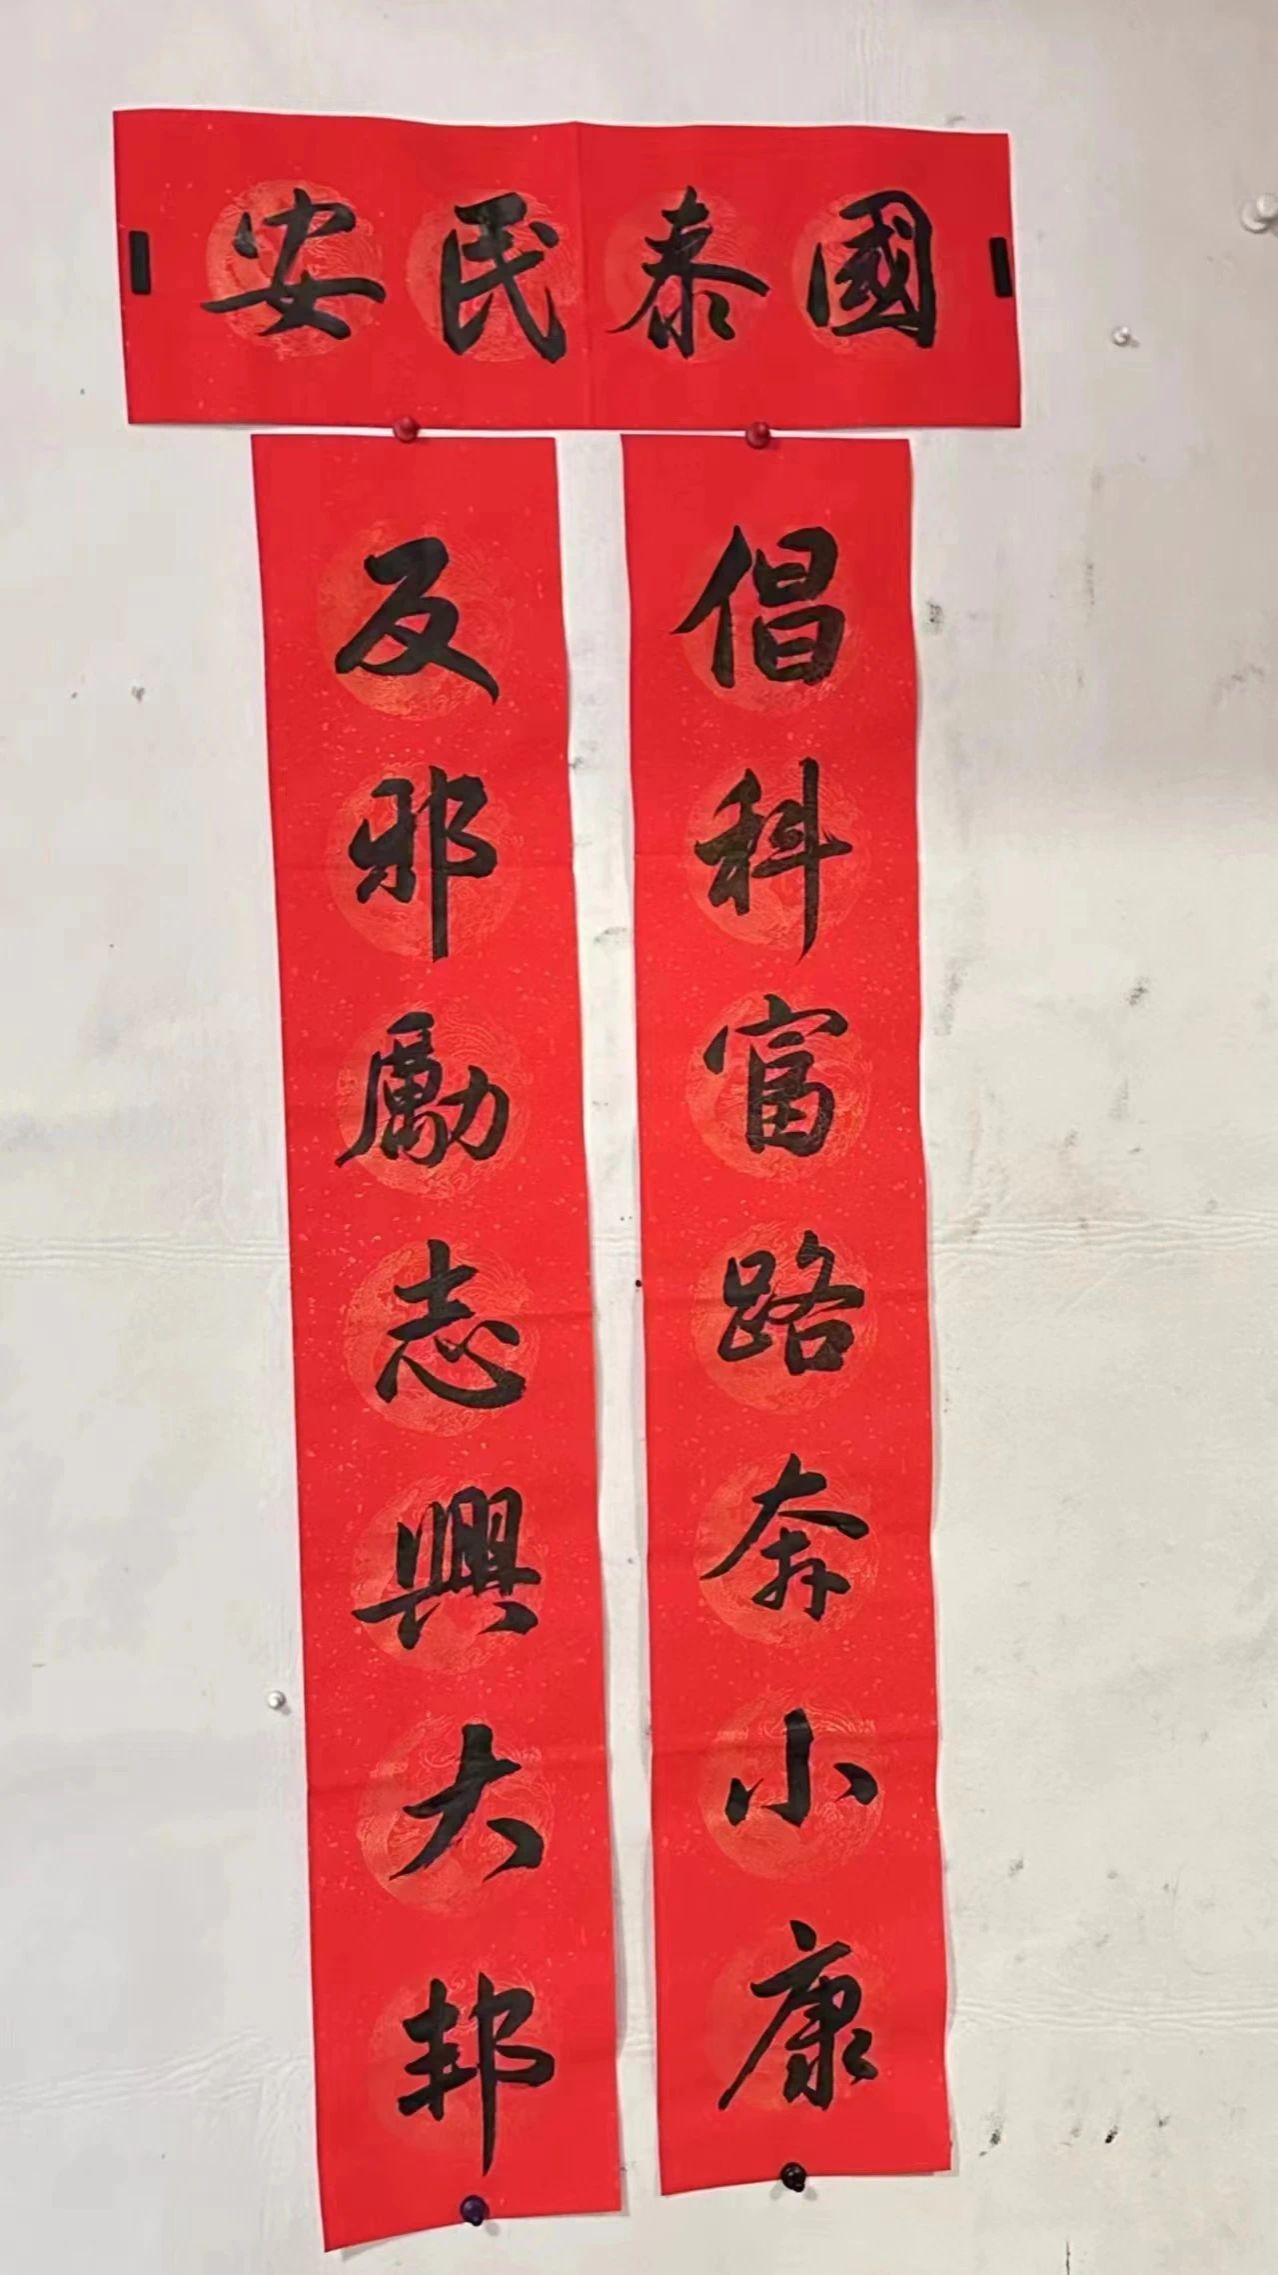 國泰民安
倡科富路奔小康
反邪勵志興大邦